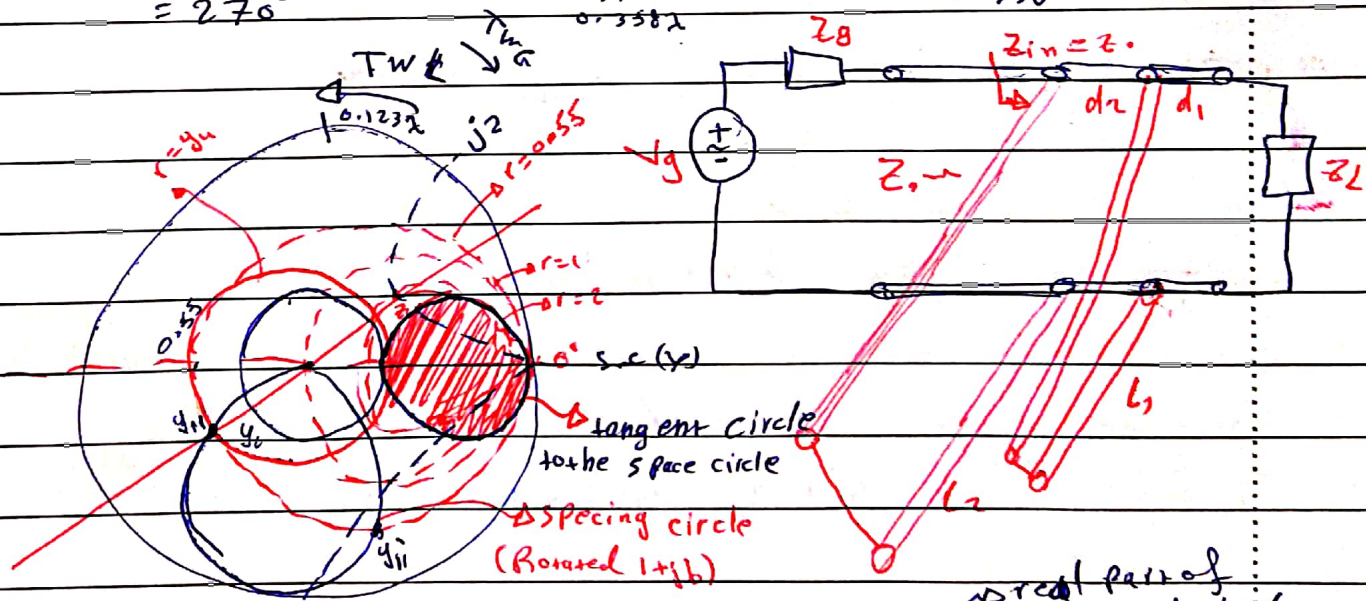 = 270°
0.358λ
TW
0.123λ
j2
r=0.55
r=1
r=2
0.55
0°
s.c (y)
tangent circle
to the space circle
Specing circle
(Rotated 1+jb)
y11
y11
Zg
Zin = Z.
d2
d1
Vg
Z.
ZL
l1
l2
real part of